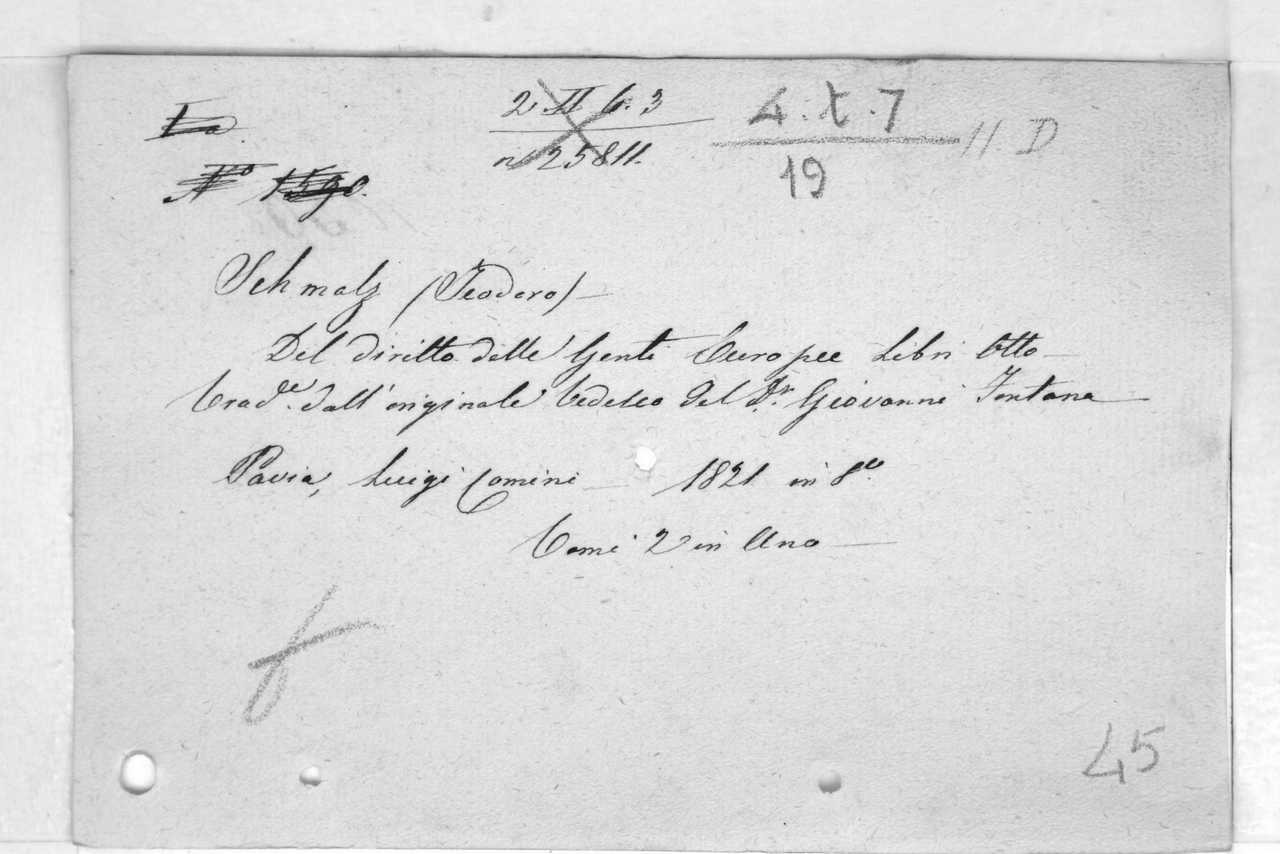 2. II b. 3
n 25811.
4. t. 7
19
11. D
No 1590.
Schmalz (Teodoro) —
Del diritto delle Genti Europee Libri Otto —
Trad.e dall'originale tedesco del D.r Giovanni Fontana —
Pavia, Luigi Comini — 1821 in 8.o
Tomi 2 in Uno —
f
45